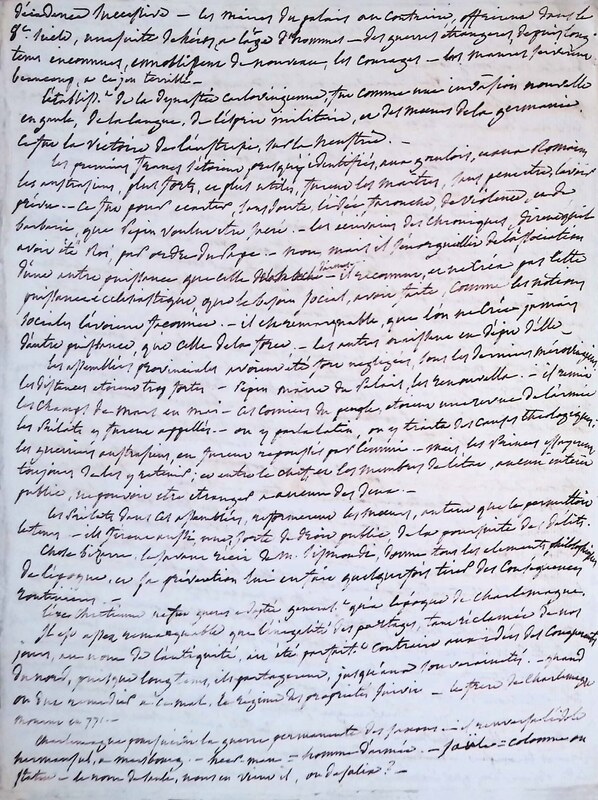 décidence successive – les maires du palais au contraire, offrirent dans le
8e siècle, une suite de héros, à l'âge d'hommes – des guerres étrangères, depuis long
tems inconnues, ennoblissent de nouveau les courages – les mœurs
beaucoup, à ce terrible –
L'établisst de la dynastie carlovingienne, fut comme une invasion nouvelle
en gaule, de la langue, de l'esprit militaire, et des mœurs de la germanie.
Ce fut la victoire de l'austrasie, sur la neustrie. –
les premiers francs s'étoient presqu'identifiés, aux gaulois, et aux Romains
les austrasiens, plus forts, et plus utiles, furent les maîtres, sans
– Ce fut pour écarter, sans doute l'idée de violence, et de
barbarie, que Pepin voulut être sacré. – les écrivains des chroniques,
avoir été Roi, par ordre du Pape. – non, mais il de la sanction
d'une autre puissance que celle – il reconnut, et ne créa pas cette
puissance ecclésiastique, que le besoin social, avoit faite, comme les notions
sociales l'avoient façonnée. – il est remarquable, que l'on ne créa jamais
d'autre puissance, que celle de la force. – les autres existent en dépit d'elle –
les assemblées provinciales avoient été fort négligées, sous les derniers mérovingiens,
les distances étoient trop fortes – Pepin maire du Palais, les renouvella – il remit
les champs de Mars en mai – ces comices du peuple, étoient une revue de l'armée
les Prélats y furent appellés – on y parla latin, on y traita des causes théologiques,
les guerriers austrasiens, en furent repoussés par l'ennui. – mais les Princes
toujours de les y retenir; et entre le chef et les membres de l'état, aucun intérêt
public, ne pouvoit être étranger à aucun des deux. –
les Prélats dans ces assemblées, réformèrent les mœurs, autant que le permettoit
le tems – ils firent aussi une sorte de droit public, de la poursuite des délits.
Chose bizarre. le savant récit de M. Sismonde, donne tous les éléments philosophiques
de l'époque, et sa prévention lui en fait quelquefois tirer des conséquences
routinières –
L'ère chrétienne ne fut guères adoptée généralt qu'à l'époque de charlemagne,
Il est assez remarquable que l'inégalité des partages, tant réclamée de nos
jours, au nom de l'antiquité, ait été parfaitt contraire aux idées des conquérants
du nord, puisque longtems, ils partagèrent, jusqu'à la souveraineté. – quand
on eut remédié à ce mal, le régime des propriétés suivit – le frère de Charlemagne
mourut en 771 –
Charlemagne poursuivit la guerre permanente des saxons – il renversa l'idole
hermansul, à mersbourg – heer-man = homme d'armée. – saüle = colonne ou
statue – le nom de saulé, nous en vient-il, ou de salix ? –